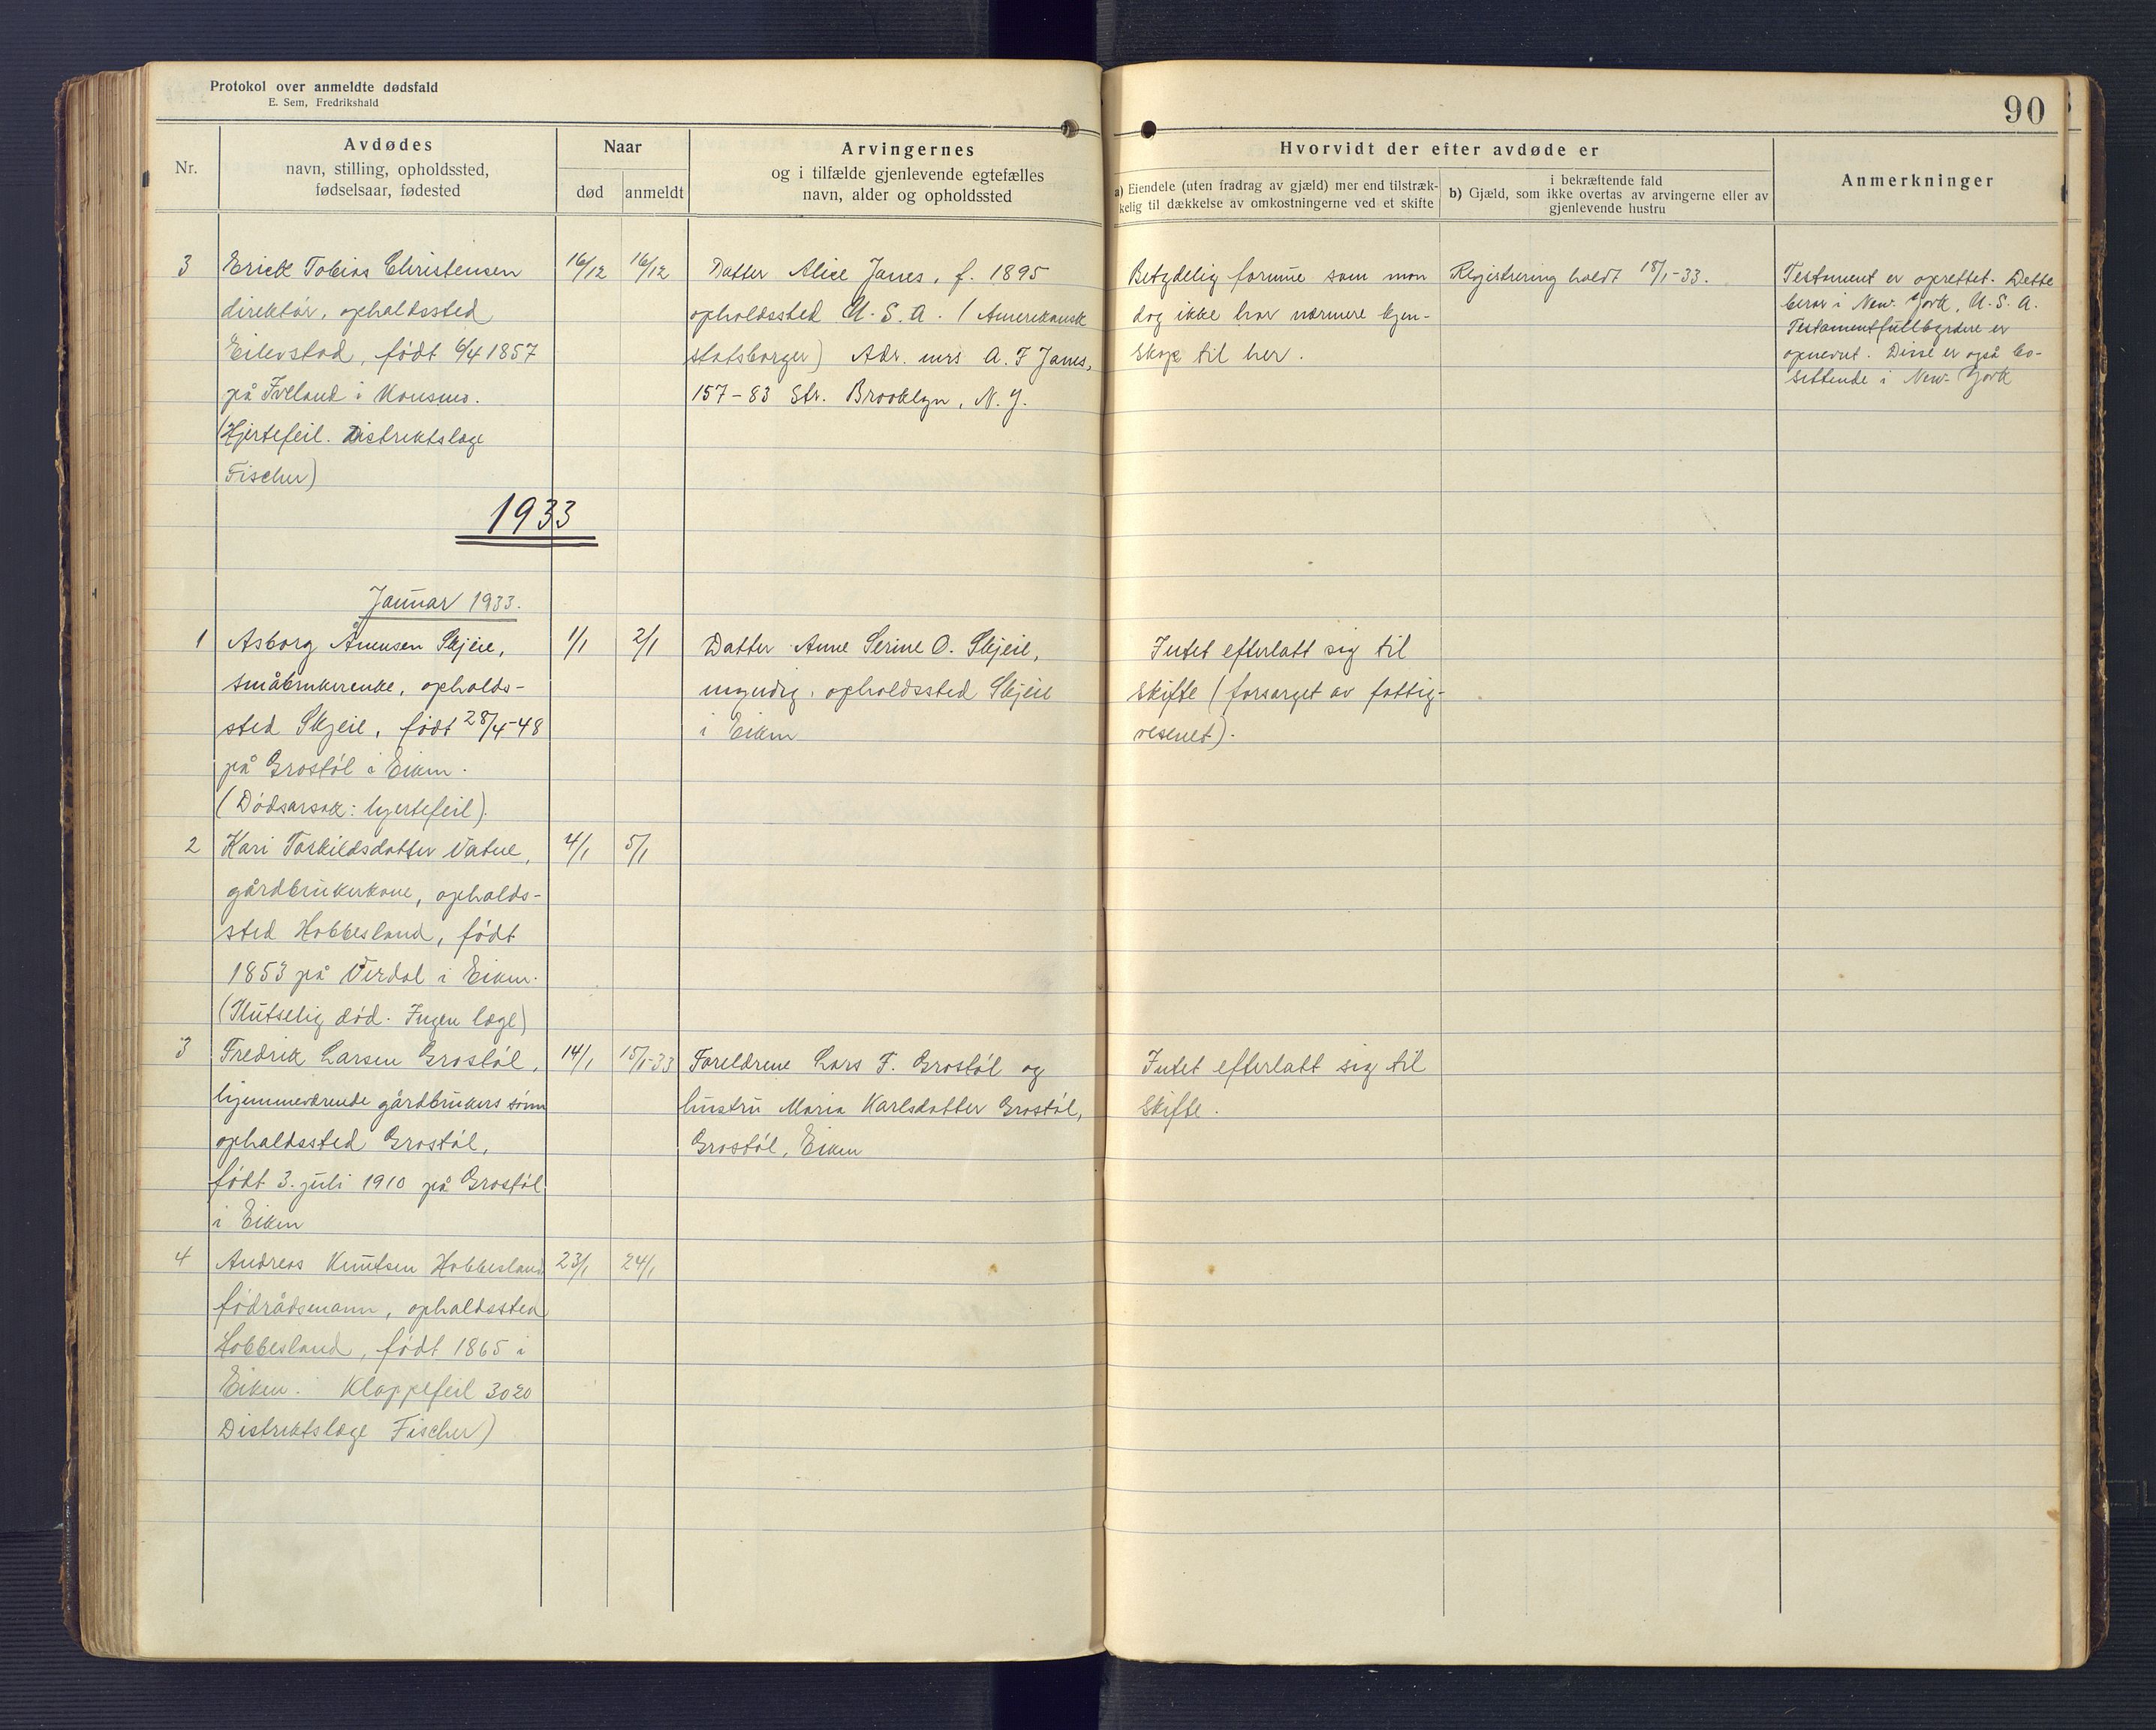 Protokol over anmeldte dødsfald
E. Sem, Fredrikshald
90
Nr.
Avdødes
navn, stilling, opholdssted,
fødselsaar, fødested
Naar
død
anmeldt
Arvingernes
og i tilfælde gjenlevende egtefælles
navn, alder og opholdssted
Hvorvidt der efter avdøde er
a) Eiendele (uten fradrag av gjæld) mer end tilstræk-
kelig til dækkelse av omkostningerne ved et skifte
i bekræftende fald
b) Gjæld, som ikke overtas av arvingerne eller av
gjenlevende hustru
Anmerkninger
3
Erick Tobias Christensen
direktør, opholdssted
Eilevstad, født 6/4 1857
på Iveland i Konsmo.
(Hjertefeil. Distriktslæge
Fischer)
16/12
16/12
Datter Alice Janes, f. 1895
opholdssted U.S.A. (Amerikansk
statsborger) Adr. mrs A. F Janes,
157-83 Str. Brooklyn, N.Y.
Betydelig formue som man
dog ikke har nærmere kjen-
skap til her.
Registrering holdt 18/1-33.
Testament er oprettet. Dette
beror i New-York, U.S.A.
Testamentfullbyrdere er
opnevnt. Disse er også bo-
settende i New-York
1933
Januar 1933.
1
Asborg Åmensen Skjeie,
småbrukerenke, opholds-
sted Skjeie, født 28/4-48
på Grostøl i Eiken.
(Dødsarsak: hjertefeil).
1/1
2/1
Datter Anne Serine O. Skjeie,
myndig, opholdssted Skjeie
i Eiken
Intet efterlatt sig til
skifte (forsørget av fattig-
vesenet).
2
Kari Torkildsdatter Vatne,
gårdbrukerkone, opholds-
sted Hobbesland, født
1853 på Verdal i Eiken.
(Plutselig død. Ingen læge)
4/1
5/1
3
Fredrik Larsen Grostøl,
hjemmeværende gårdbrukers sønn
opholdssted Grostøl,
født 3. juli 1910 på Grostøl
i Eiken
14/1
15/1-33
Foreldrene Lars F. Grostøl og
hustru Maria Karlsdatter Grostøl,
Grostøl, Eiken
Intet efterlatt sig til
skifte.
4
Andreas Knutsen Hobbesland
födrådsmann, opholdssted
Hobbesland, født 1865 i
Eiken. Klappefeil 3020
Distriktslæge Fischer)
23/1
24/1